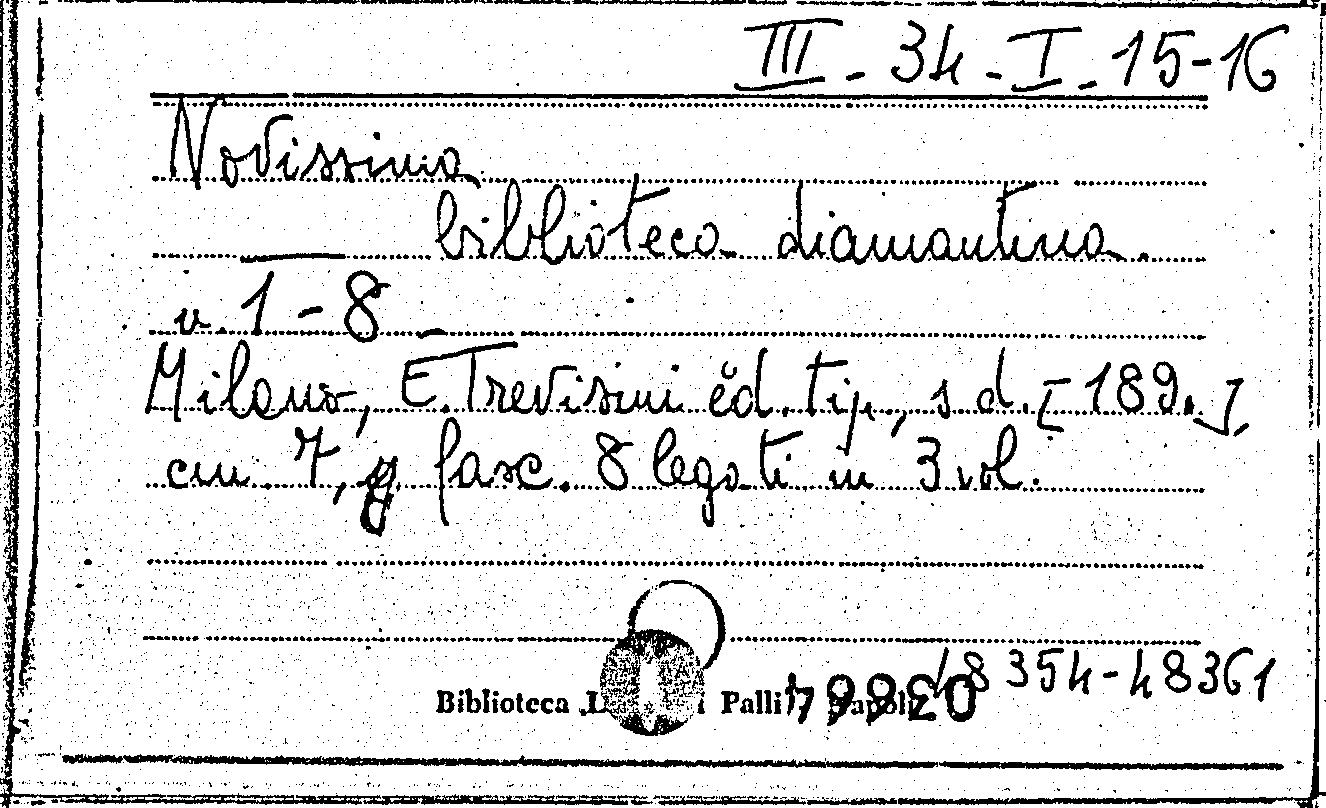 III - 34 - I - 15-16
Novissima
biblioteca diamantina.
v. 1 - 8 -
Milano, E. Trevisini ed. tip., s d. [189.],
cm. 7, fasc. 8 legati in 3 vol.
48354-48361
Biblioteca Palli
03664